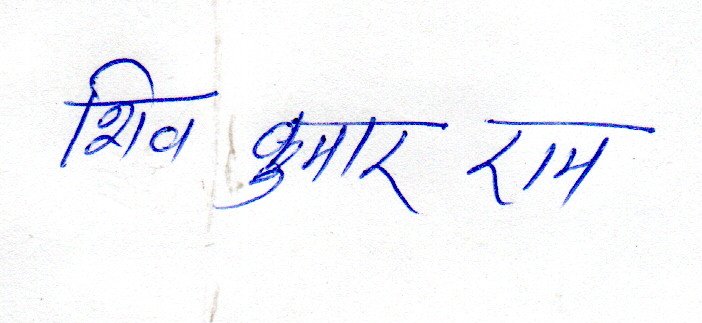 शिव कुमार राम